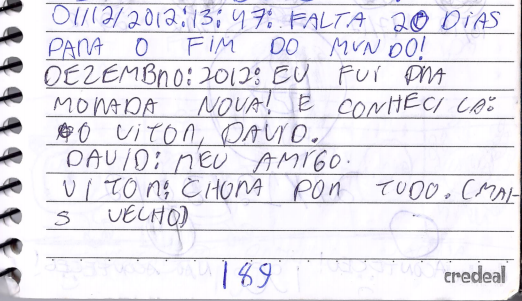 01/12/2012:13:47: FALTA 20 DIAS
PARA O FIM DO MUNDO!
DEZEMBRO:2012: EU FUI PRA
MORADA NOVA! E CONHECI LÁ:
O VITOR, DAVID.
DAVID: MEU AMIGO.
VITOR: CHORA POR TUDO. (MAI-
S VELHO)
189
credeal